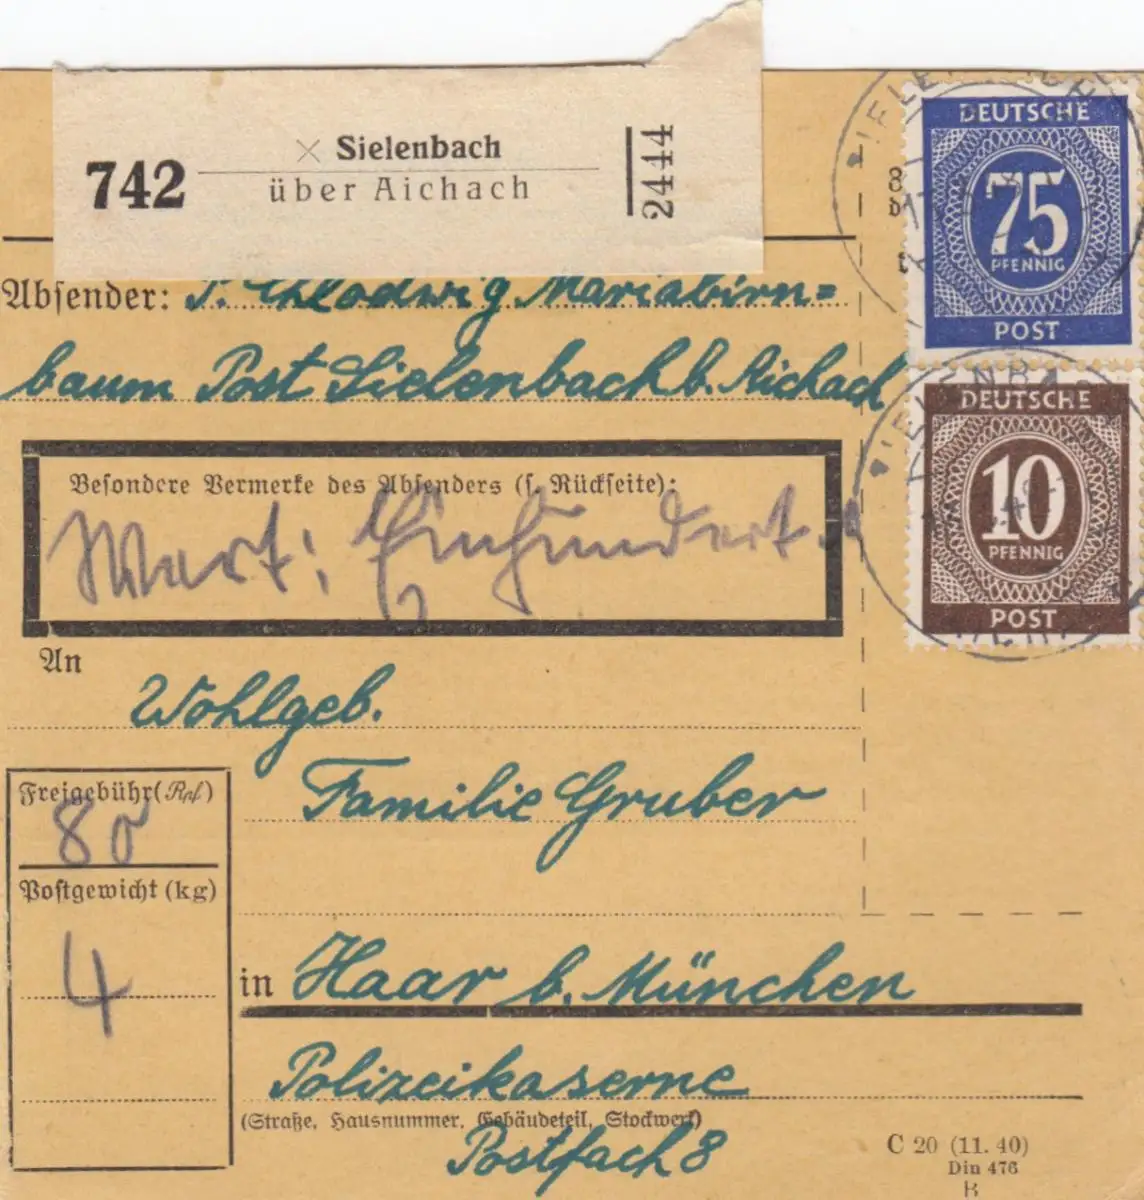 742
× Sielenbach
über Aichach
24444
DEUTSCHE
75
PFENNIG
POST
Absender: P. Chlodwig Mariabirn=
baum Post Sielenbach b. Aichach
DEUTSCHE
10
PFENNIG
POST
Besondere Vermerke des Absenders (s. Rückseite):
Wert: Einhundert
An
Wohlgeb.
Familie Gruber
Freigebühr (Rpf)
80
Postgewicht (kg)
4
in Haar b. München
Polizeikaserne
(Straße, Hausnummer, Gebäudeteil, Stockwerk)
Postfach 8
C 20 (11. 40)
Din 476